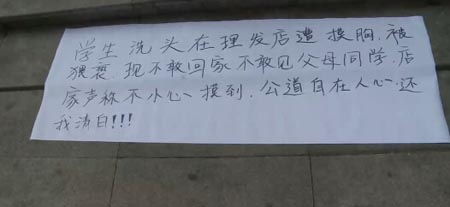 学生洗头在理发店遭摸胸.被
猥亵.现不敢回家不敢见父母同学.店
家声称不小心摸到.公道自在人心.还
我清白!!!